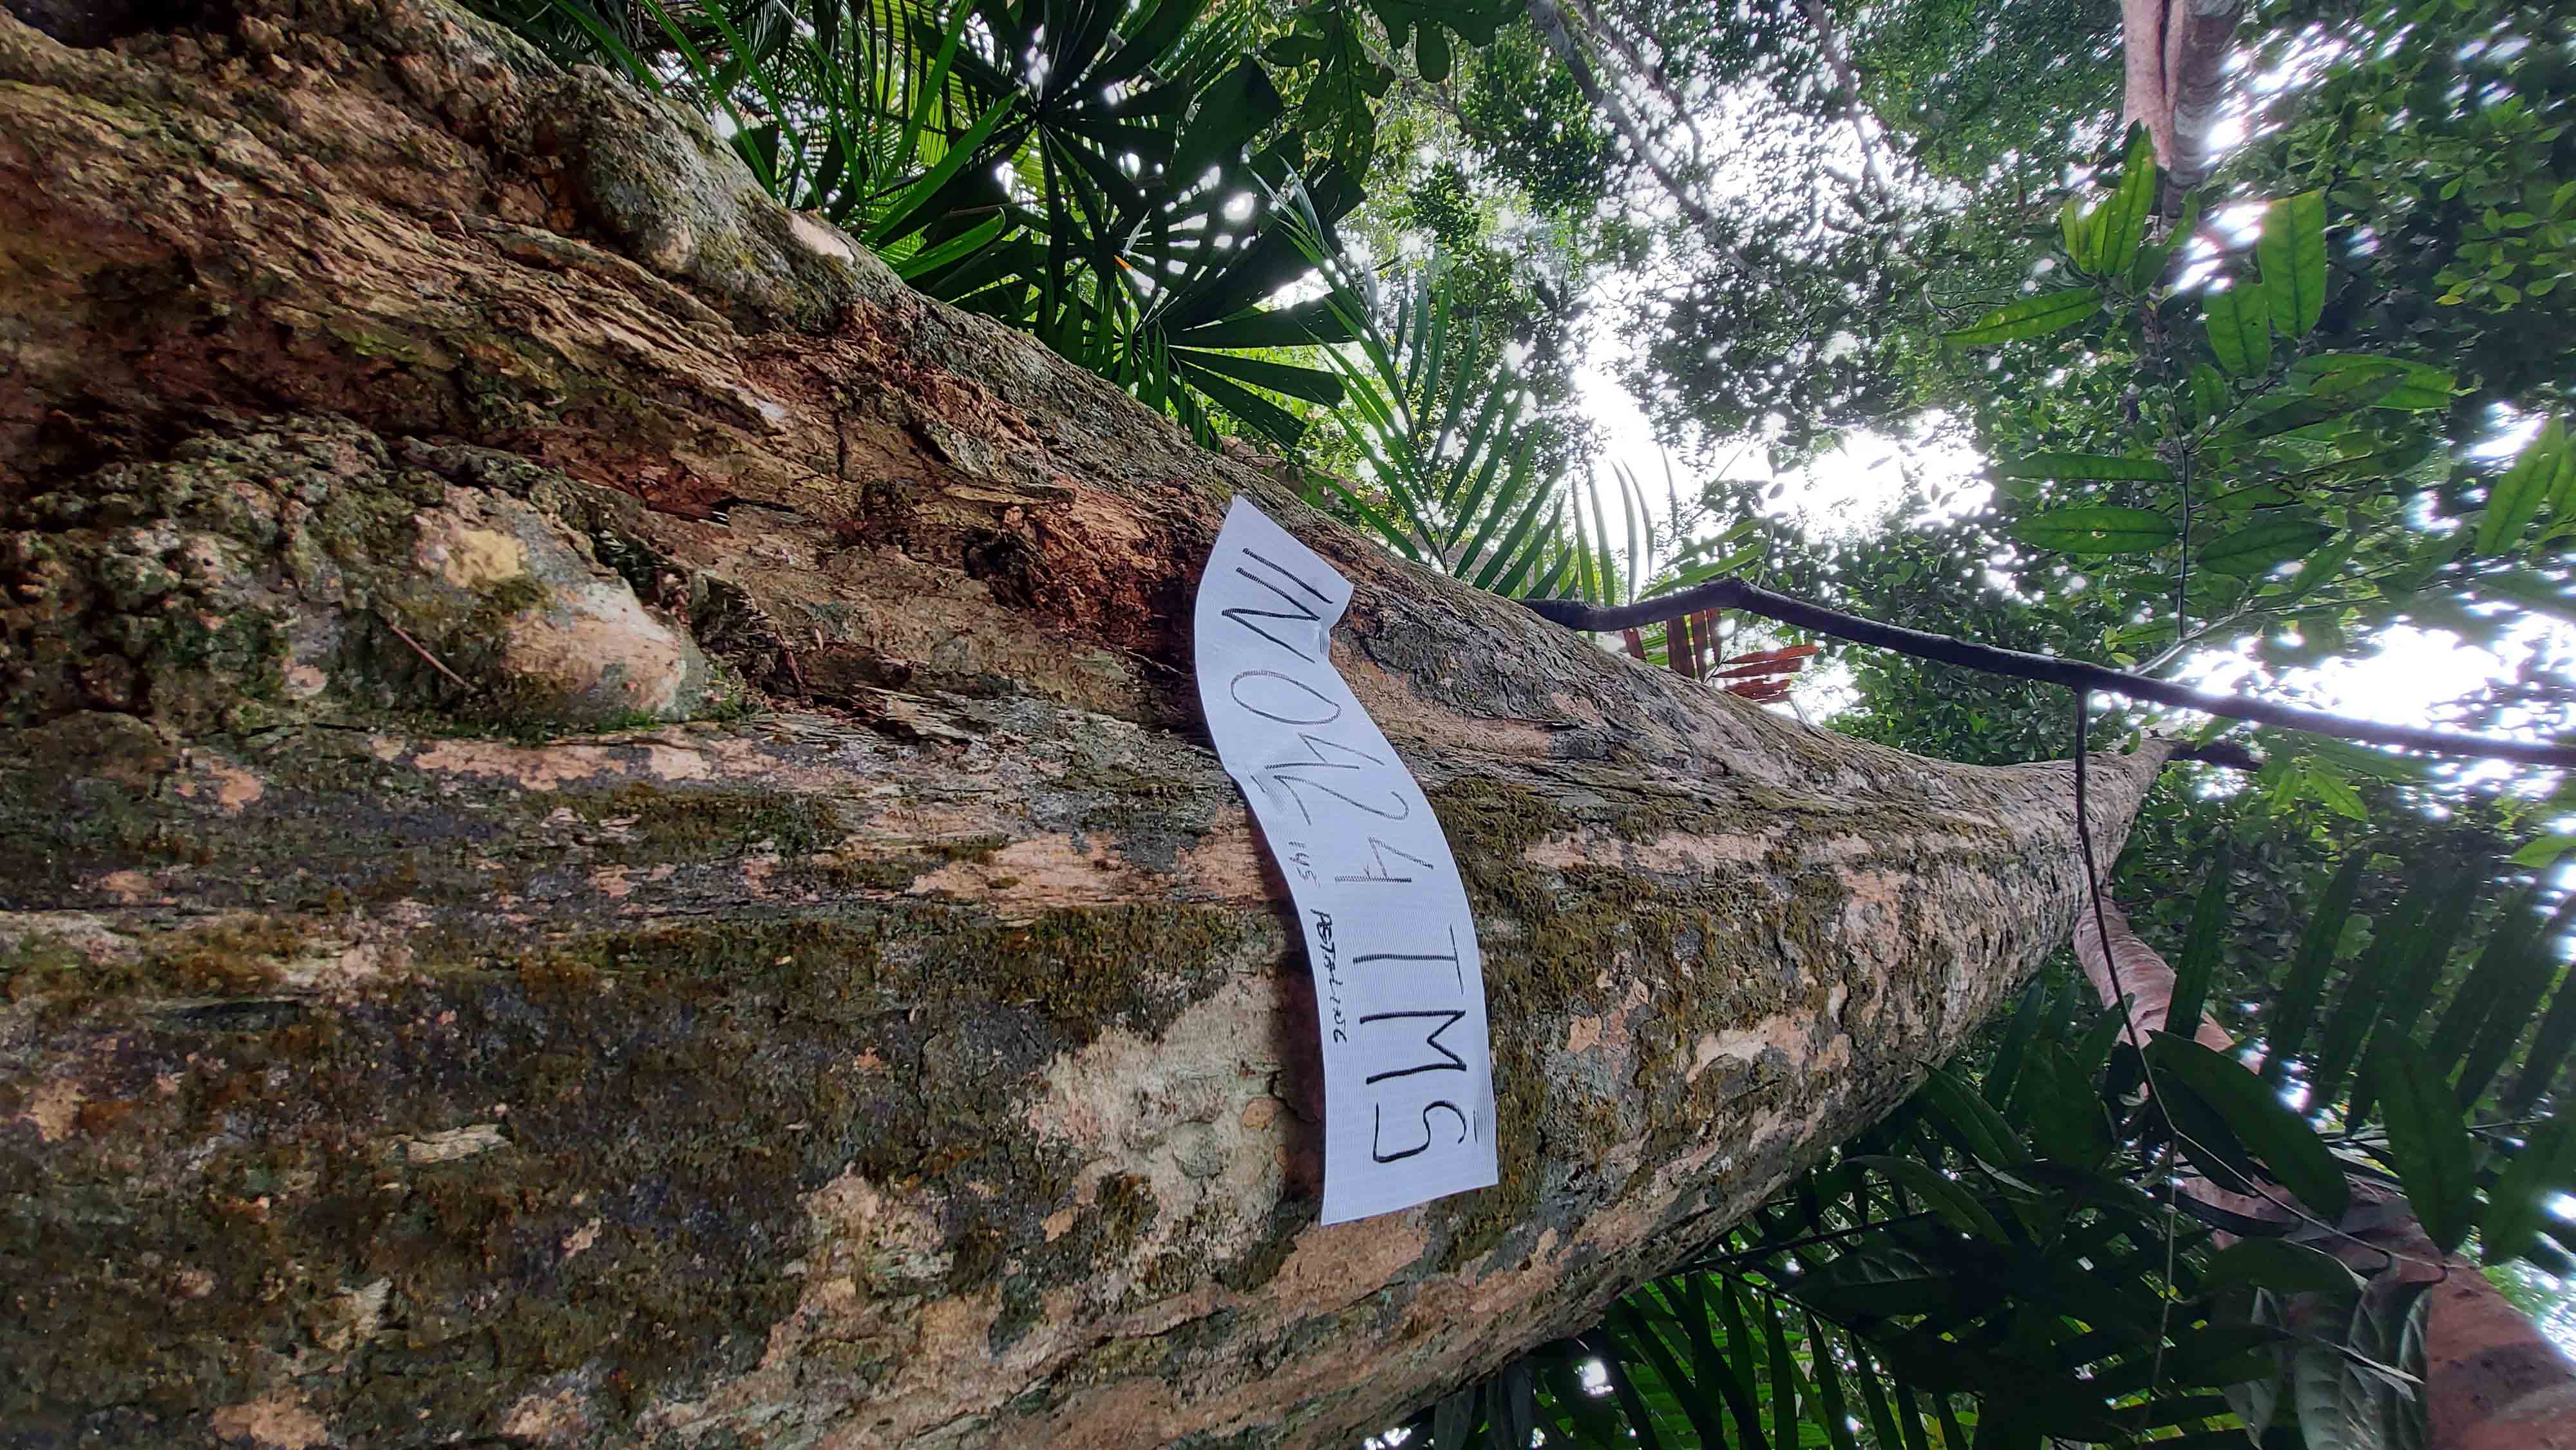 IN0424 TMS
145 PETALING